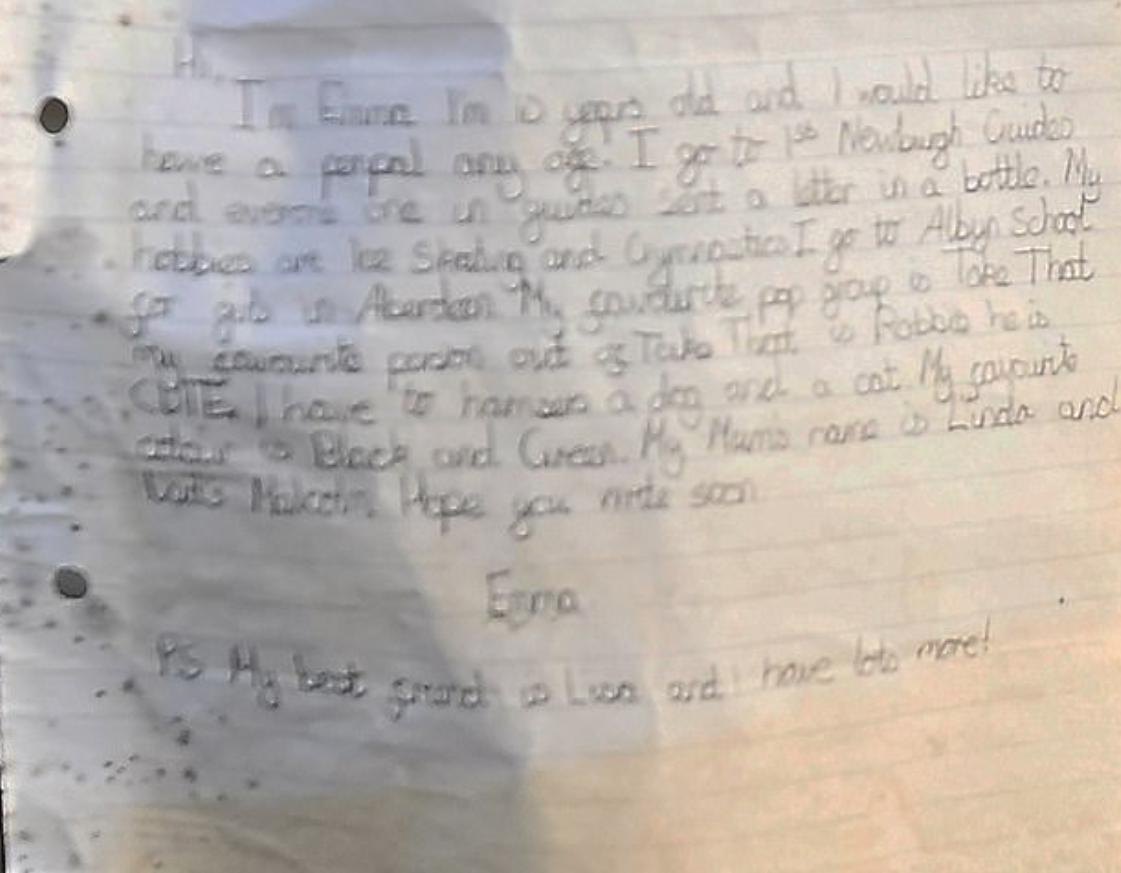 Hi,
I'm Emma I'm 10 years old and I would like to
have a penpal any age. I go to 1st Newburgh Guides
and one in guides sent a letter in a bottle. My
hobbies are Ice Skating and Gymnastics I go to Albyn School
for girls in Aberdeen My pop group is Take That
my favourite person out of Take That is Robbie he is
CUTE. I have to a dog and a cat My favourite
colour is Black and Green. My Mum's name is Linda and
Malcolm. Hope you write soon
Emma
PS My best is and I have lots more!